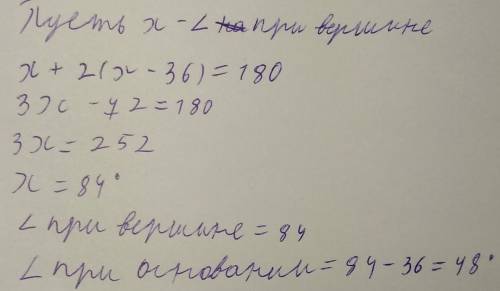 Пусть x - ∠ при вершине
x + 2(x - 36) = 180
3x - 72 = 180
3x = 252
x = 84°
∠ при вершине = 84
∠ при основании = 84 - 36 = 48°